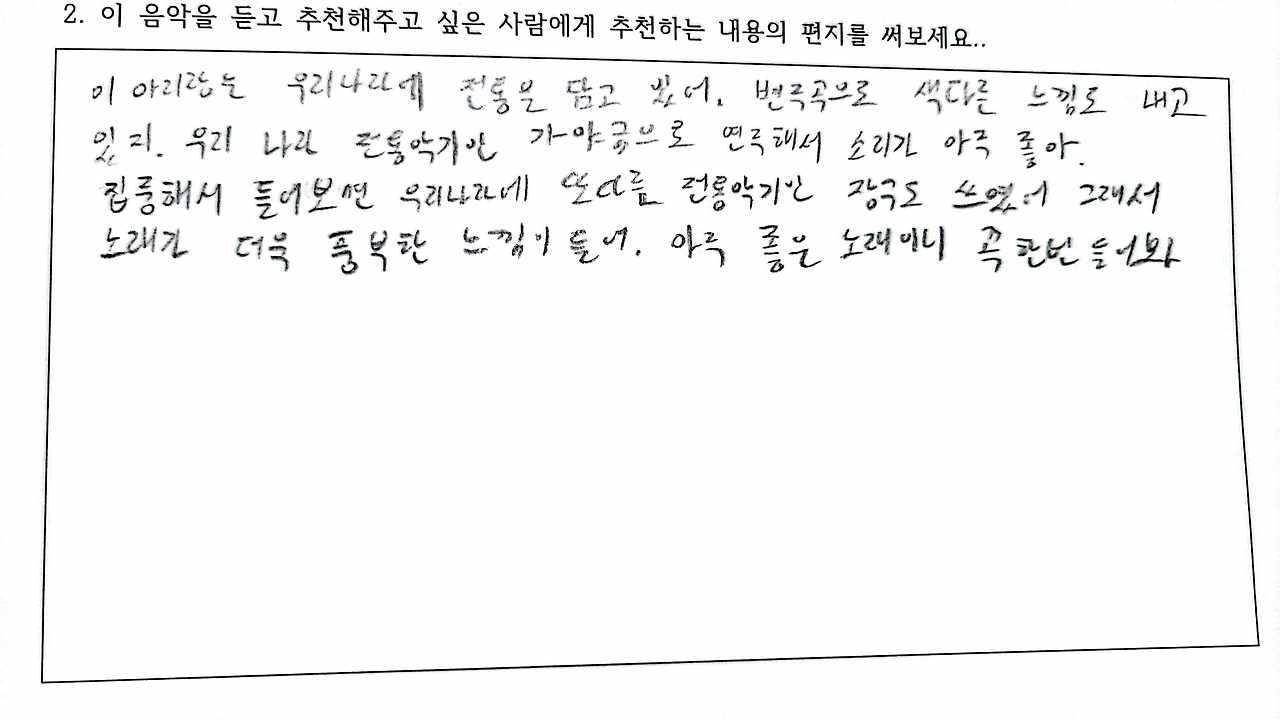 2. 이 음악을 듣고 추천해주고 싶은 사람에게 추천하는 내용의 편지를 써보세요..
이 아리랑는 우리나라에 전통은 담고 있어. 변주곡으로 색다른 느낌도 내고
있지. 우리 나라 전통악기인 가야금으로 연주해서 소리가 아주 좋아.
집중해서 들어보면 우리나라에 또다름 전통악기인 장구도 쓰였어 그래서
노래가 더욱 풍부한 느낌이 들어. 아주 좋은 노래이니 꼭 한번 들어봐